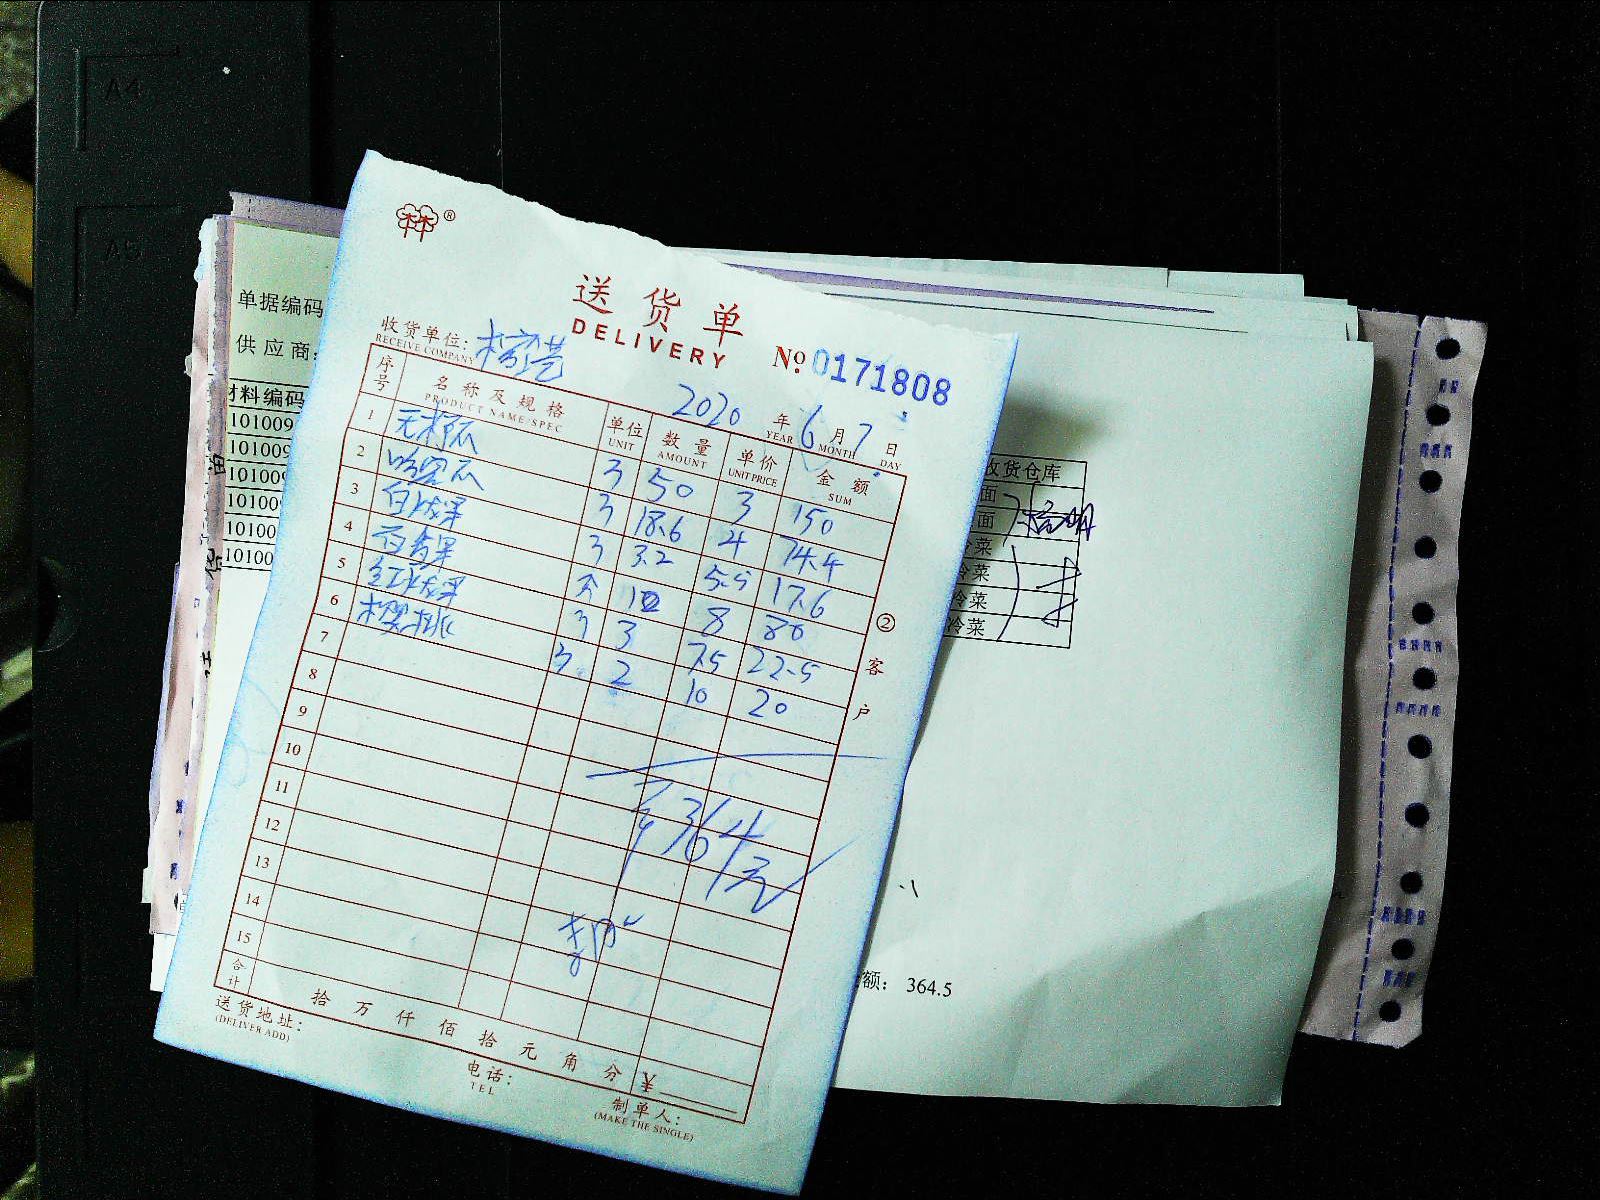 A4
A5
单据编码
供应商:
材料编码
101009
101009
101009
10100
10100
10100
送货单
DELIVERY
No. 0171808
收货单位:
RECEIVE COMPANY
2020 年 6 月 7 日
YEAR MONTH DAY
序号 名称及规格 单位 数量 单价 金额
PRODUCT NAME/SPEC UNIT AMOUNT UNIT PRICE SUM
1 无籽瓜 3 50 3 150
2 哈密瓜 3 18.6 4 74.4
3 白火龙果 3 3.2 5.5 17.6
4 百香果 斤 10 8 80
5 红火龙果 3 3 7.5 22.5
6 樱桃 3 2 10 20
7
8
9
10
11
12
13
14
15
¥364元
合计 拾 万 仟 佰 拾 元 角 分 ¥
送货地址:
(DELIVER ADD)
电话:
TEL
制单人:
(MAKE THE SINGLE)
②客户
收货仓库
面
面
冷菜
冷菜
冷菜
冷菜
额: 364.5